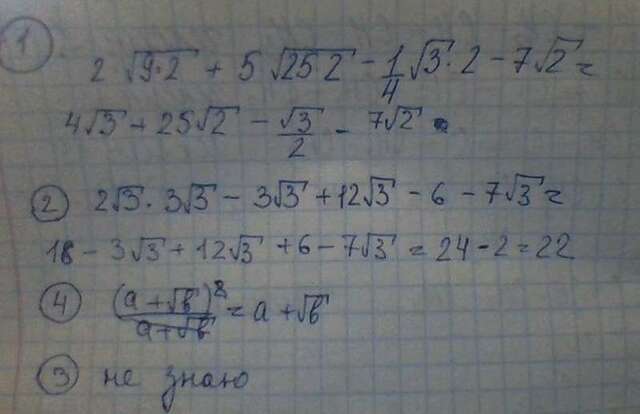 ① 2 √9·2 + 5 √25·2 - 1/4 √3·2 - 7√2 =
4√3 + 25√2 - √3/2 - 7√2
② 2√3 · 3√3 - 3√3 + 12√3 - 6 - 7√3 =
18 - 3√3 + 12√3 + 6 - 7√3 = 24 - 2 = 22
④ (a + √b)²/a + √b = a + √b
③ не знаю